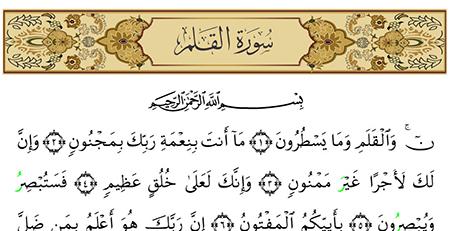 سُورَةُ القَلَمِ
بِسْمِ اللَّهِ الرَّحْمَٰنِ الرَّحِيمِ
نٓ ۚ وَالْقَلَمِ وَمَا يَسْطُرُونَ ﴿١﴾ مَآ أَنتَ بِنِعْمَةِ رَبِّكَ بِمَجْنُونٍ ﴿٢﴾ وَإِنَّ
لَكَ لَأَجْرًا غَيْرَ مَمْنُونٍ ﴿٣﴾ وَإِنَّكَ لَعَلَىٰ خُلُقٍ عَظِيمٍ ﴿٤﴾ فَسَتُبْصِرُ
وَيُبْصِرُونَ ﴿٥﴾ بِأَييِّكُمُ الْمَفْتُونُ ﴿٦﴾ إِنَّ رَبَّكَ هُوَ أَعْلَمُ بِمَن ضَلَّ